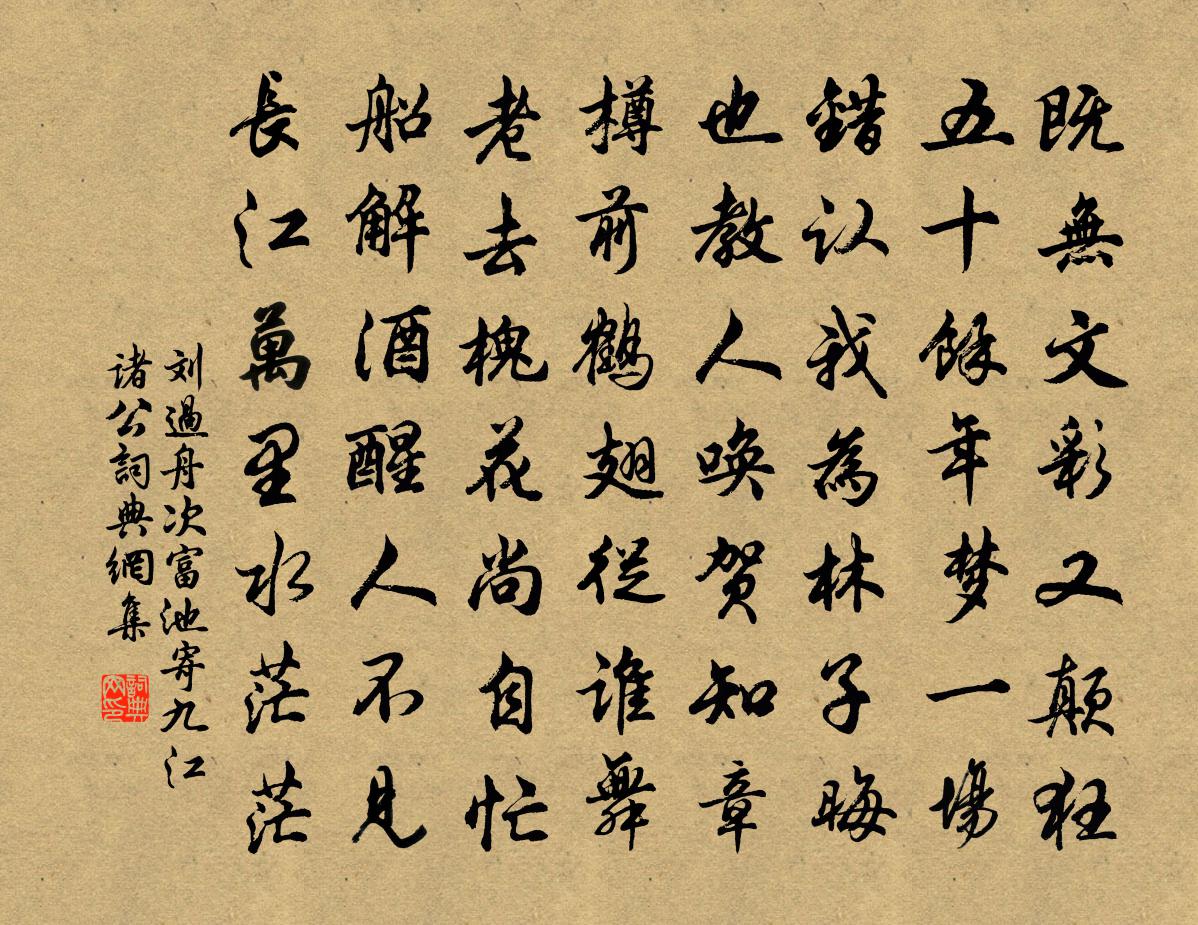 既無文彩又顛狂
五十餘年梦一場
錯认我為林子晦
也教人唤贺知章
樽前鶴翅從誰舞
老去槐花尚自忙
船解酒醒人不見
長江萬里水茫茫
刘過舟次富池寄九江
诸公詞典網集
詞典网印